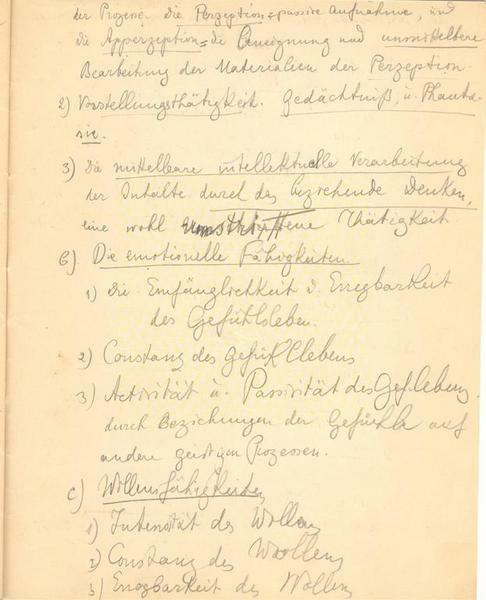 der Prozess. die Perzeption = passive Aufnahme, und
die Apperzeption = die Aneignung und unmittelbare
Bearbeitung der Materialien der Perzeption.
2) Vorstellungsthätigkeit. Gedächtniß, u. Phanta-
sie.
3) Die mittelbare intellektuelle Verarbeitung
der Inhalte durch das beziehende Denken,
eine wohl umstrittene Thätigkeit
B) Die emotionelle Fähigkeiten
1) die Empfänglichkeit u. Erregbarkeit
des Gefühlsleben.
2) Constanz des Gefühllebens
3) Activität u. Passivität des Gef.lebens
durch Beziehungen der Gefühle auf
andere geistigen Prozessen.
C) Willensfähigkeiten
1) Intensität des Wollens
2) Constanz des Wollens
3) Erregbarkeit des Wollens